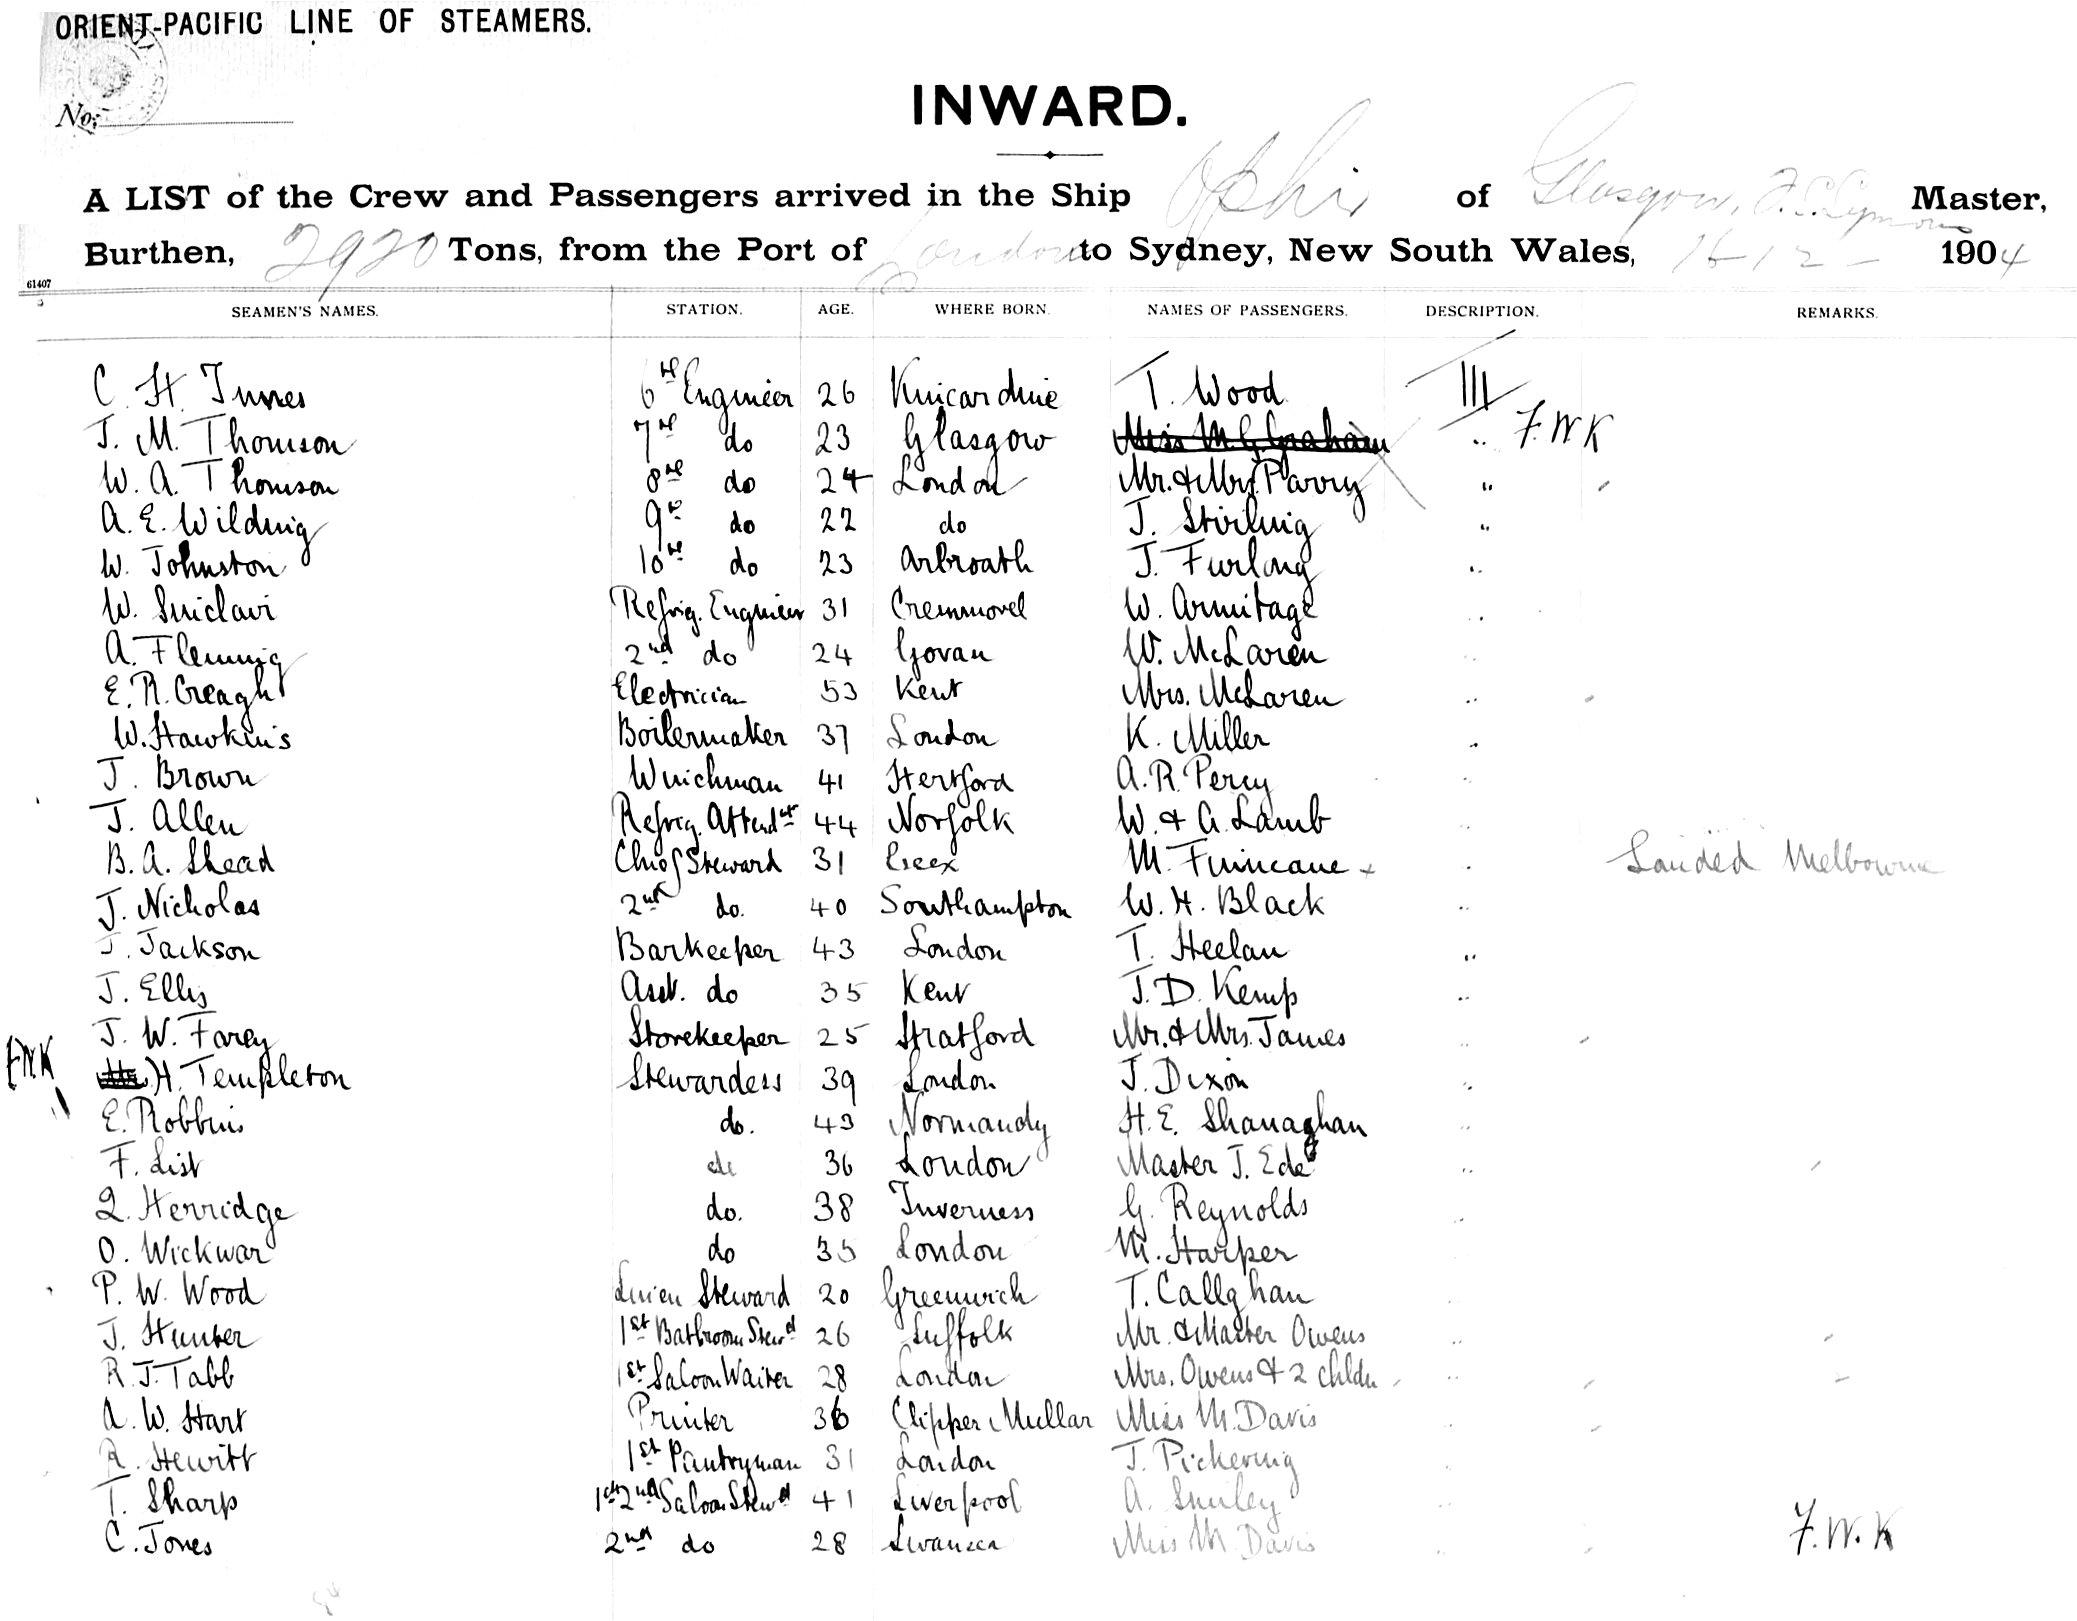 ORIENT-PACIFIC LINE OF STEAMERS.
No.
INWARD.
A LIST of the Crew and Passengers arrived in the Ship Ophir of Glasgow, Master,
Burthen, 2920 Tons, from the Port of London to Sydney, New South Wales, 1904
61407
SEAMEN'S NAMES. STATION. AGE. WHERE BORN. NAMES OF PASSENGERS. DESCRIPTION. REMARKS.
C. H. Innes 6th Engineer 26 Kincardine T. Wood III
J. M. Thomson 7th do 23 Glasgow Miss M. G. Graham " F.W.K
W. A. Thomson 8th do 24 London Mr. & Mrs. Parry "
A. E. Wilding 9th do 22 do J. Stirling "
W. Johnston 10th do 23 Arbroath J. Furlong "
W. Sinclair Refrig. Engineer 31 W. Armitage "
A. Fleming 2nd do 24 Govan W. McLaren "
E. R. Creagh Electrician 53 Kent Mrs. McLaren "
W. Hawkins Boilermaker 37 London K. Miller "
J. Brown Winchman 41 Hertford A. R. Percy "
J. Allen Refrig. Attendt 44 Norfolk W. & A. Lamb "
B. A. Shead Chief Steward 31 Essex M. Finncane x " Landed Melbourne
J. Nicholas 2nd do. 40 Southampton W. H. Black "
J. Jackson Barkeeper 43 London T. Heelan "
J. Ellis Asst. do 35 Kent J. D. Kemp "
J. W. Farey Storekeeper 25 Stratford Mr. & Mrs. James "
F.W.K H. Templeton Stewardess 39 London J. Dixon "
E. Robbins do. 43 Normandy H. E. Shanaghan "
F. List do 36 London Master J. Ede "
L. Herridge do. 38 Inverness G. Reynolds "
O. Wickwar do 35 London M. Harper
P. W. Wood Linen Steward 20 Greenwich T. Callghan "
J. Hunter 1st Bathroom Stewd 26 Suffolk Mr. & Master Owens "
R. J. Tabb 1st Saloon Waiter 28 London Mrs. Owens & 2 chldn "
A. W. Hart Printer 36 Clipper Mullar Miss M. Davis "
R. Hewitt 1st Pantryman 31 London J. Pickering "
T. Sharp 1st 2nd Saloon Stewd 41 Liverpool A. Smiley "
C. Jones 2nd do 28 Swansea Miss M Davis " F.W.K